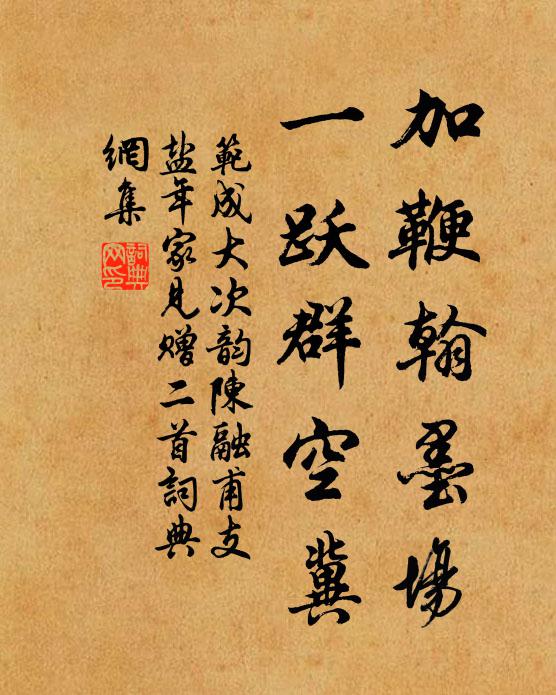 加鞭翰墨場
一跃群空冀
範成大次韵陳融甫支
盐年家見贈二首詞典
網集
詞典
网印